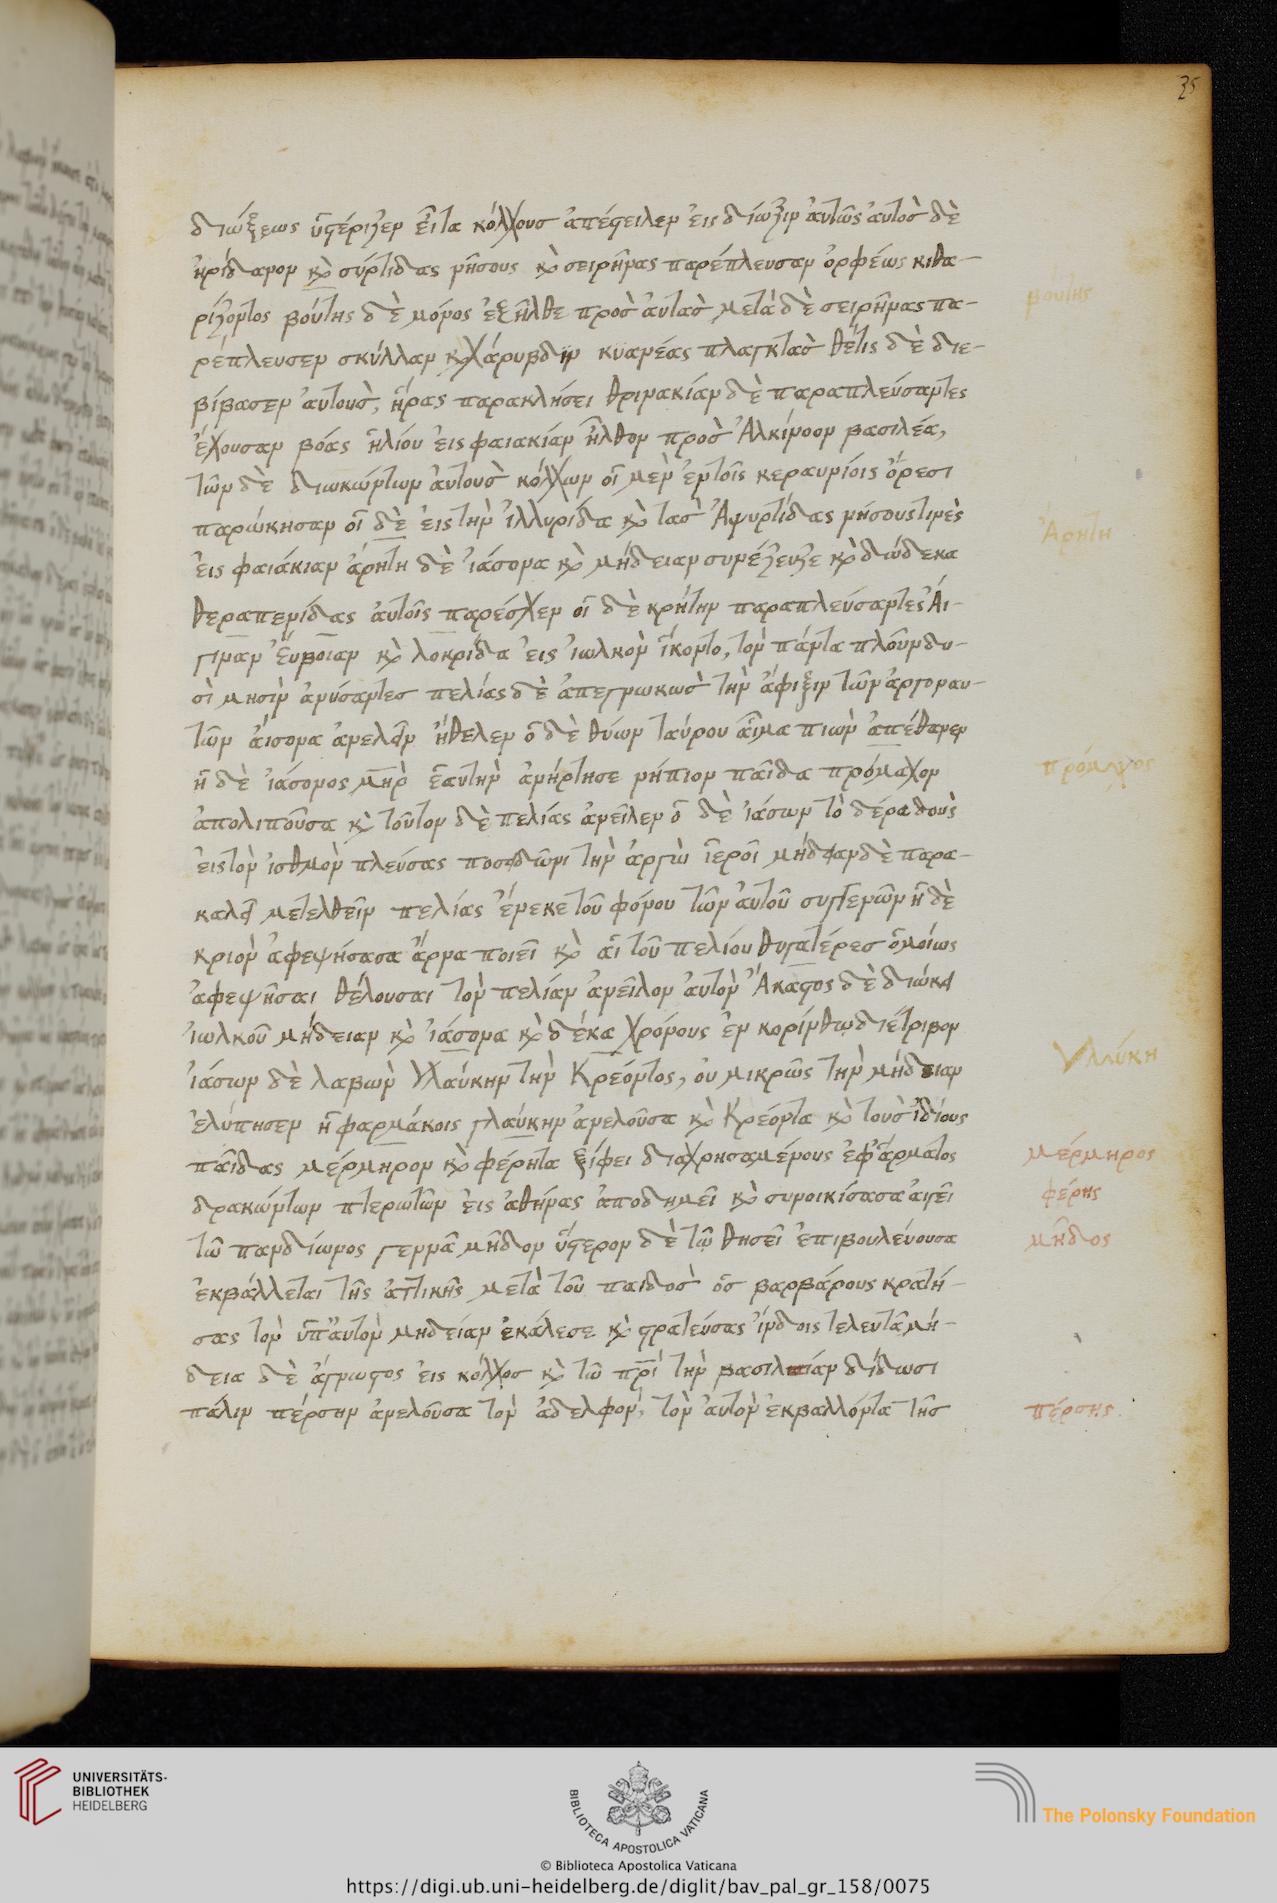 35
διώξεως ὑστέριζεν εἶτα κόλχους ἀπέστειλεν εἰς δίωξιν αὐτῶν αὐτὸς δὲ
ἠρίδανον κ̀ σύρτιδας νήσους κ̀ σειρῆνας παρέπλευσαν ὀρφέως κιθα-
ρίζοντος βούτης δὲ μόνος ἐξῆλθε πρὸς αὐτὰς μετὰ δὲ σειρῆνας πα-
βούτης
ρέπλευσεν σκύλλαν κ̀ χάρυβδιν κυανέας πλαγκτὰς θέτις δὲ διε-
βίβασεν αὐτοὺς, ἥρας παρακλήσει θρινακίαν δὲ παραπλεύσαντες
ἔχουσαν βόας ἡλίου εἰς φαιακίαν ἦλθον πρὸς Ἀλκίνοον βασιλέα,
τῶν δὲ διωκώντων αὐτοὺς κόλχων οἱ μὲν ἐν τοῖς κεραυνίοις ὄρεσι
παρώκησαν οἱ δὲ εἰς τὴν ἰλλυρίδα κ̀ τὰς Ἀψυρτίδας νήσους τινὲς
Ἀρήτη
εἰς φαιάκιαν ἀρήτη δὲ ἰάσονα κ̀ μήδειαν συνέζευξε κ̀ δώδεκα
θεραπενίδας αὐτοῖς παρέσχεν οἱ δὲ κρήτην παραπλεύσαντες Αἰ-
γιναν Εὔβοιαν κ̀ λοκρίδα εἰς ἰωλκὸν ἵκοντο, τὸν πάντα πλοῦν δυ-
σὶ μησὶν ἀνύσαντες πελίας δὲ ἀπεγνωκὼς τὴν ἄφιξιν τῶν ἀργοναυ-
τῶν αἴσονα ἀνελεῖν ἤθελεν ὁ δὲ θύων ταύρου αἷμα πιὼν ἀπέθανεν
ἡ δὲ ἰάσονος μηρ ἑαυτὴν ἀνήρτησε νήπιον παῖδα πρόμαχον
πρόμαχος
ἀπολιποῦσα κ̀ τοῦτον δὲ πελίας ἀνεῖλεν ὁ δὲ ἰάσων τὸ δέρα δοὺς
εἰς τὸν ἰσθμὸν πλεύσας ποσειδῶνι τὴν ἀργὼ ἱεροῖ μήδειαν δὲ παρα-
καλεῖ μετελθεῖν πελίας ἕνεκε τοῦ φόνου τῶν αὐτοῦ συγγενῶν ἡ δὲ
κριὸν ἀφεψήσασα ἄρνα ποιεῖ κ̀ αἱ τοῦ πελίου θυγατέρες ὁμοίως
ἀφεψῆσαι θέλουσαι τὸν πελίαν ἀνεῖλον αὐτὸν Ἄκαστος δὲ διώκει
ἰωλκοῦ μήδειαν κ̀ ἰάσονα κ̀ δέκα χρόνους ἐν κορίνθῳ διέτριβον
ἰάσων δὲ λαβὼν Γλαύκην τὴν Κρέοντος, οὐ μικρῶς τὴν μήδειαν
Γλαύκη
ἐλύπησεν ἡ φαρμάκοις γλαύκην ἀνελοῦσα κ̀ Κρέοντα κ̀ τοὺς ἰδίους
παῖδας μέρμηρον κ̀ φέρητα ξίφει διαχρησαμένους ἐφ' ἅρματος
μέρμηρος
δρακώντων πτερωτῶν εἰς ἀθήνας ἀποδημεῖ κ̀ συνοικίσασα αἰγεῖ
φέρης
τῶ πανδίωνος γεννᾶ μῆδον ὕστερον δὲ τῶ θησεῖ ἐπιβουλεύουσα
μῆδος
ἐκβάλλεται τῆς ἀττικῆς μετὰ τοῦ παιδὸς ὃς βαρβάρους κρατή-
σας τὸν ὑπ' αὐτὸν μηδείαν ἐκάλεσε κ̀ στρατεύσας ἰνδοῖς τελευτᾶ μή-
δεια δὲ ἄγνωστος εἰς κόλχος κ̀ τῶ πρὶ τὴν βασιλείαν δίδωσι
πάλιν πέρσην ἀνελοῦσα τὸν ἀδελφὸν, τὸν αὐτὸν ἐκβαλλόντα τῆς
πέρσης
UNIVERSITÄTS-
BIBLIOTHEK
HEIDELBERG
BIBLIOTECA APOSTOLICA VATICANA
The Polonsky Foundation
© Biblioteca Apostolica Vaticana
https://digi.ub.uni-heidelberg.de/diglit/bav_pal_gr_158/0075